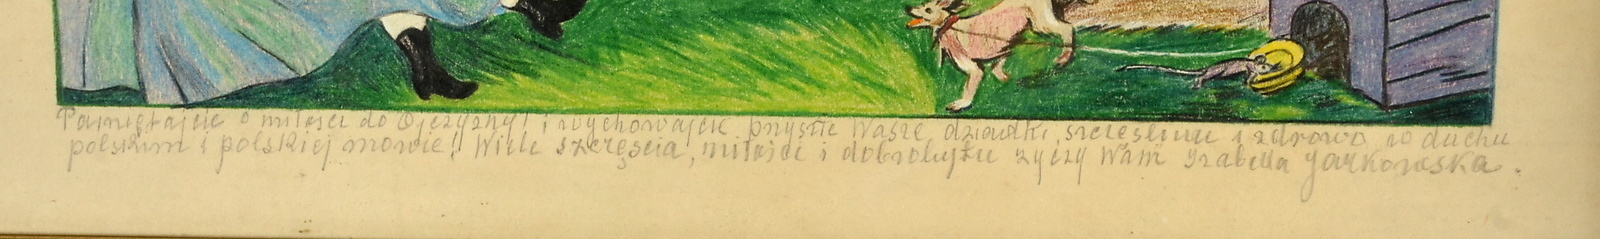 Pamiętajcie o miłości do Ojczyzny! i wychowajcie przyszłe Wasze dziadki, szczęśliwie i zdrowo w duchu
polskim i polskiej mowie!! Wiele szczęścia, miłości i dobrobytu życzy Wam Izabella Jarkowska.